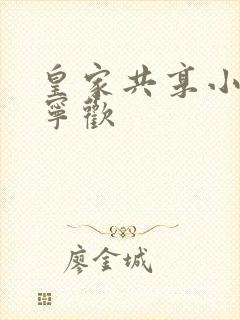 皇家共享小
寧歡
廖金城